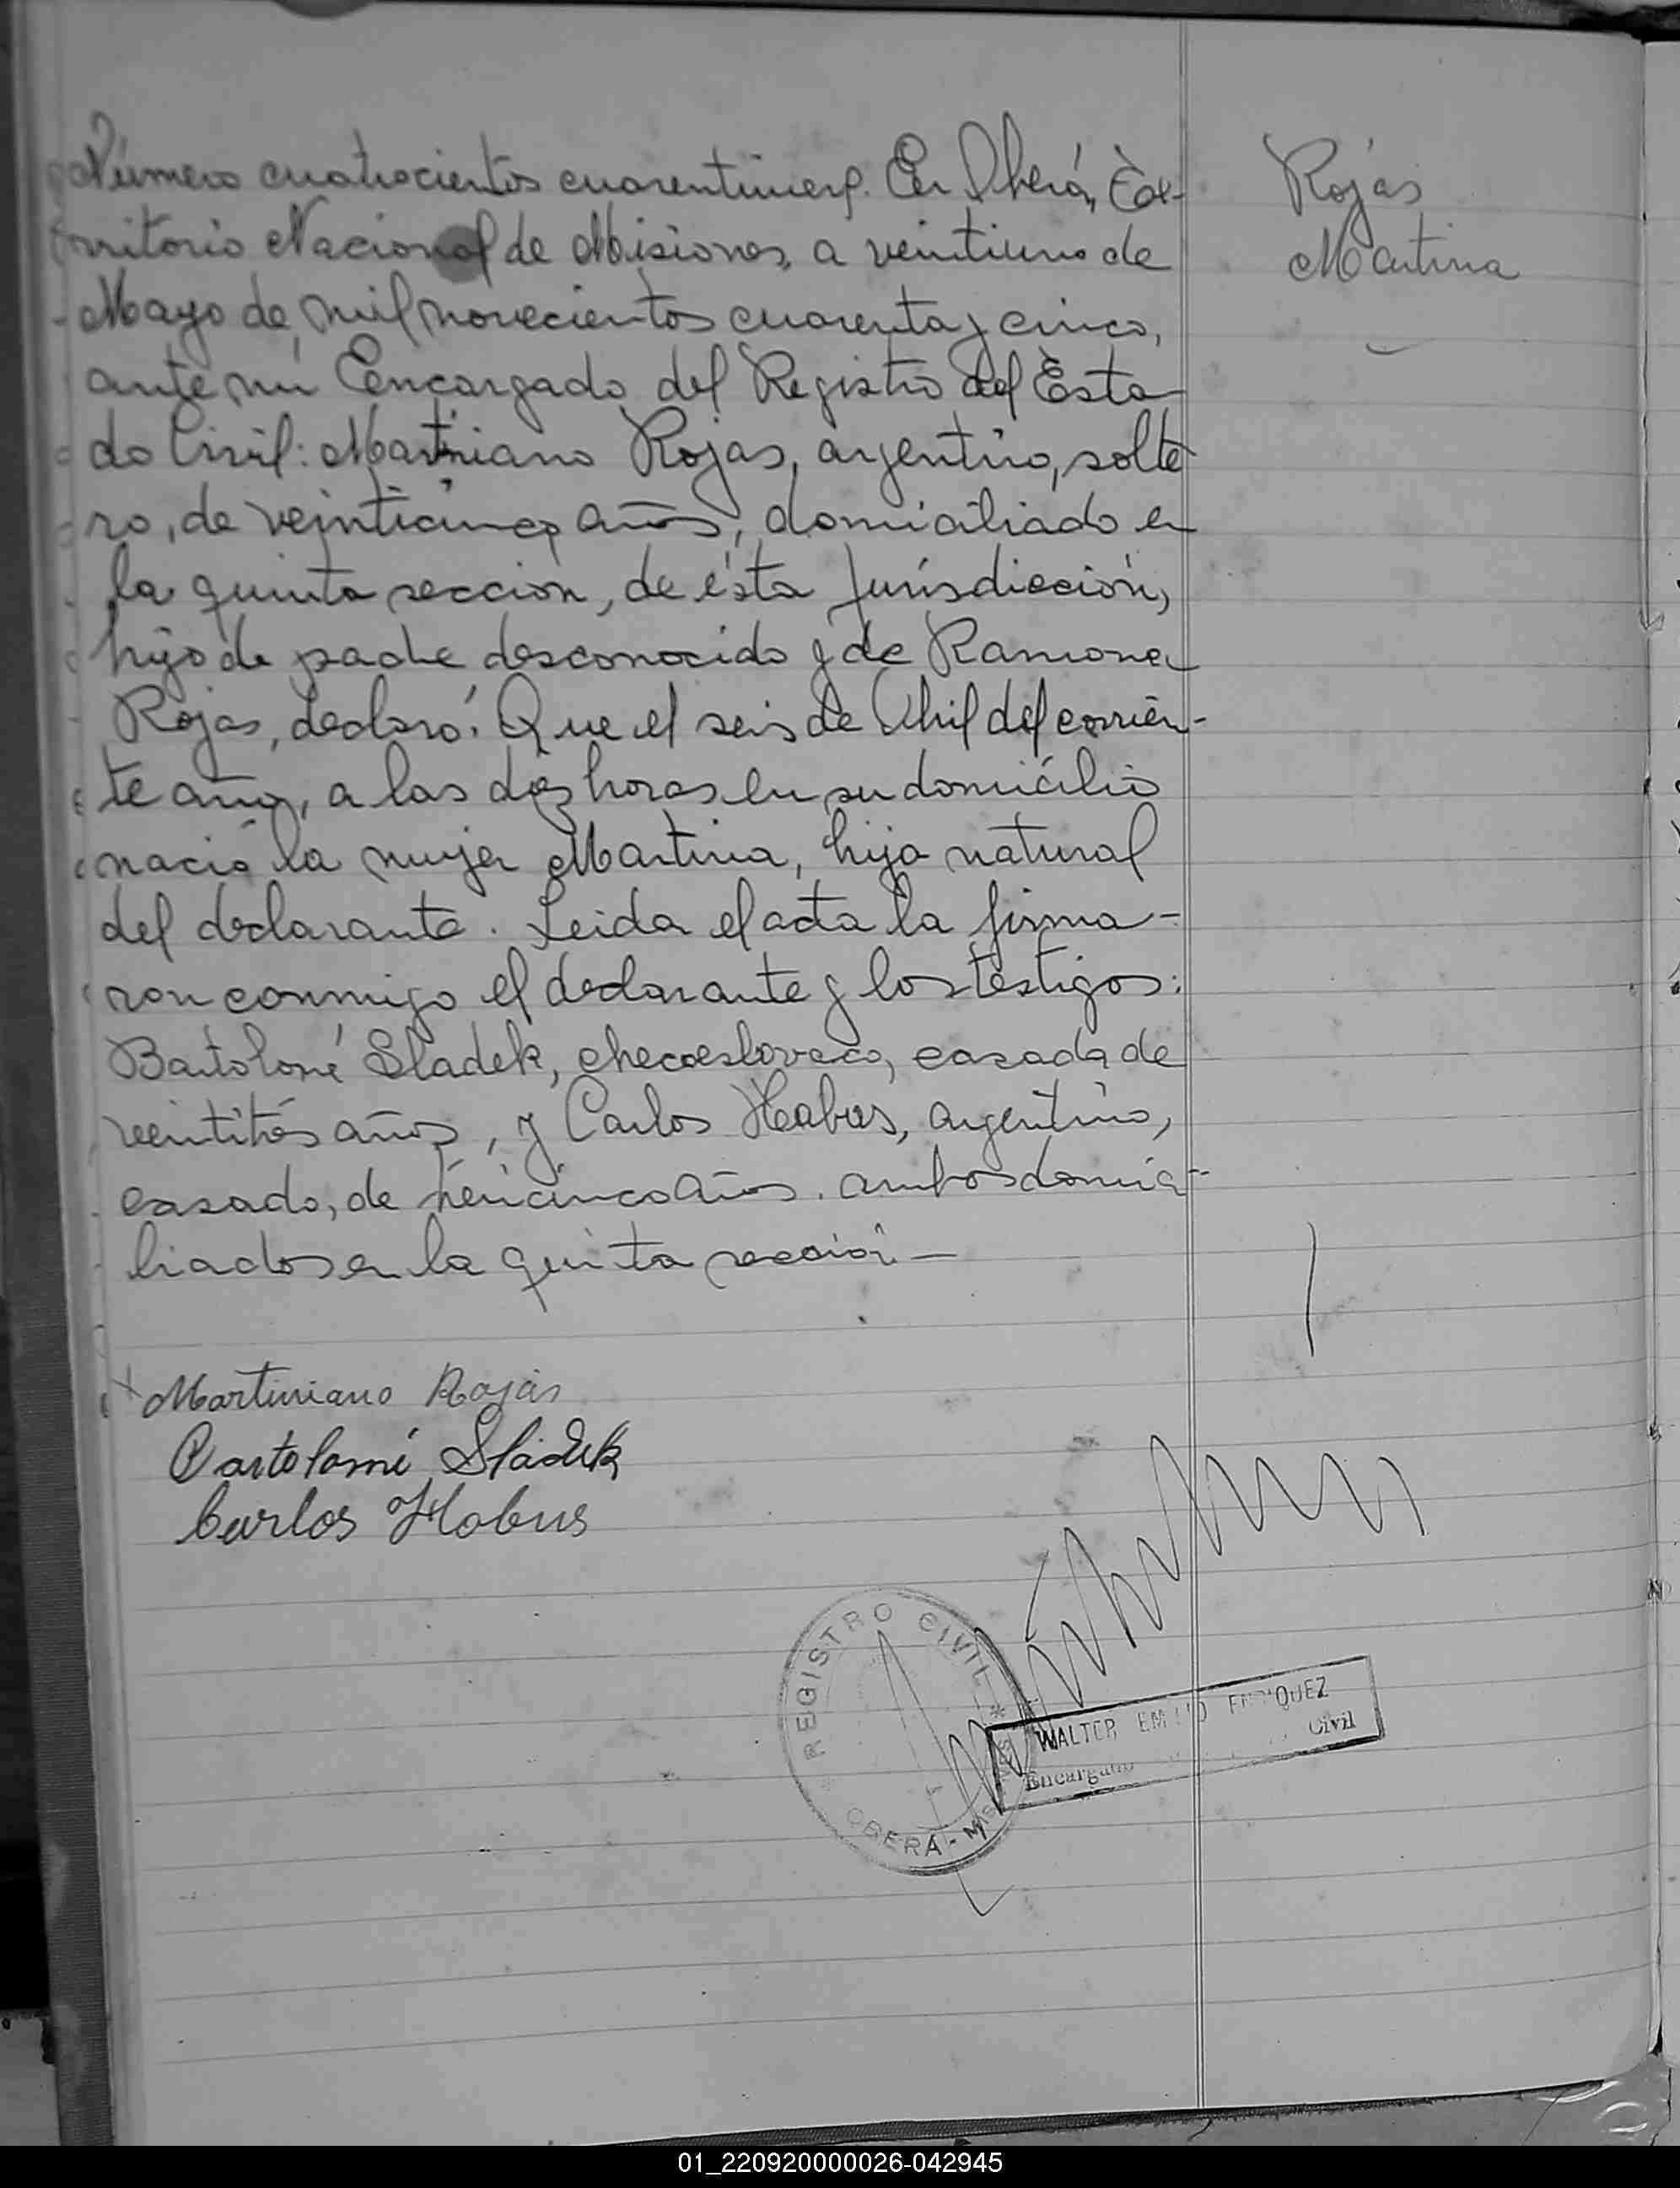 Número cuatrocientos cuarentinueve. En Oberá, Te-
rritorio Nacional de Misiones, a veintiuno de
Mayo de mil novecientos cuarenta y cinco,
ante mí Encargado del Registro del Esta-
do Civil: Martiniano Rojas, argentino, solte
ro, de veinticinco años, domiciliado en
la quinta sección, de ésta jurisdicción,
hijo de padre desconocido y de Ramona
Rojas, declaró: Que el seis de Abril del corrien-
te año, a las dos horas en su domicilio
nació la mujer Martina, hija natural
del declarante. Leida el acta la firma-
ron conmigo el declarante y los testigos:
Bartolomé Sladek, checoeslovaco, casado, de
veintitrés años, y Carlos Habus, argentino,
casado, de treicinco años. ambos domici-
liados en la quinta sección —
Rojas
Martina
Martiniano Rojas
Bartolomé Sládek
Carlos Hobus
REGISTRO CIVIL
OBERA - MISIONES
WALTER EMILIO ENRIQUEZ
Encargado Civil
01_220920000026-042945